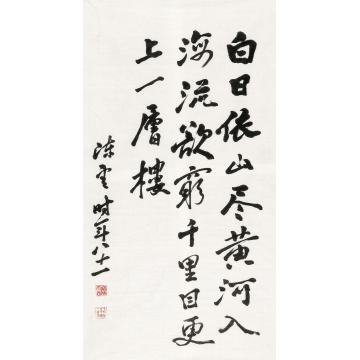 白日依山尽黄河入
海流欲穷千里目更
上一層樓
陈雲时年八十一